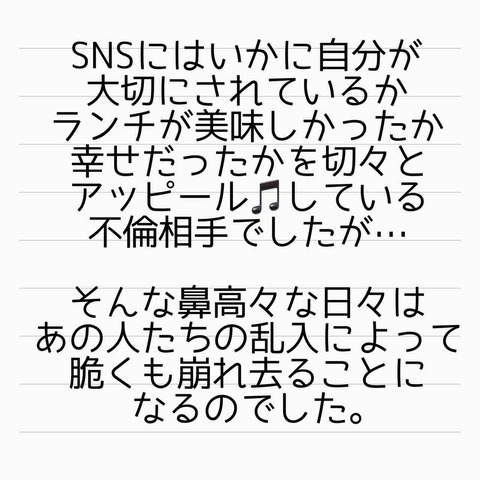 SNSにはいかに自分が
大切にされているか
ランチが美味しかったか
幸せだったかを切々と
アッピール🎵している
不倫相手でしたが…
そんな鼻高々な日々は
あの人たちの乱入によって
脆くも崩れ去ることに
なるのでした。